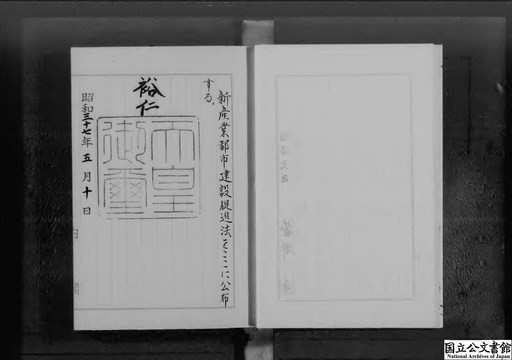 新産業都市建設促進法をここに公布
する。
裕仁
天皇
御璽
昭和三十七年五月十日
内閣
国立公文書館
National Archives of Japan